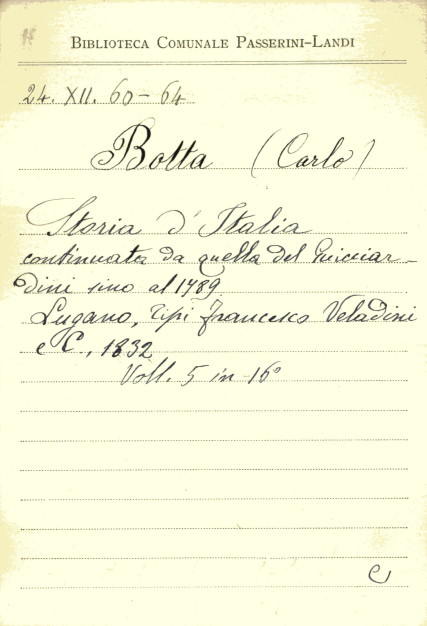 BIBLIOTECA COMUNALE PASSERINI-LANDI
24. XII. 60-64
Botta (Carlo)
Storia d'Italia
continuata da quella del Guicciar-
dini sino al 1789
Lugano, Tipi Francesco Veladini
e C., 1832
Voll. 5 in-16°
C